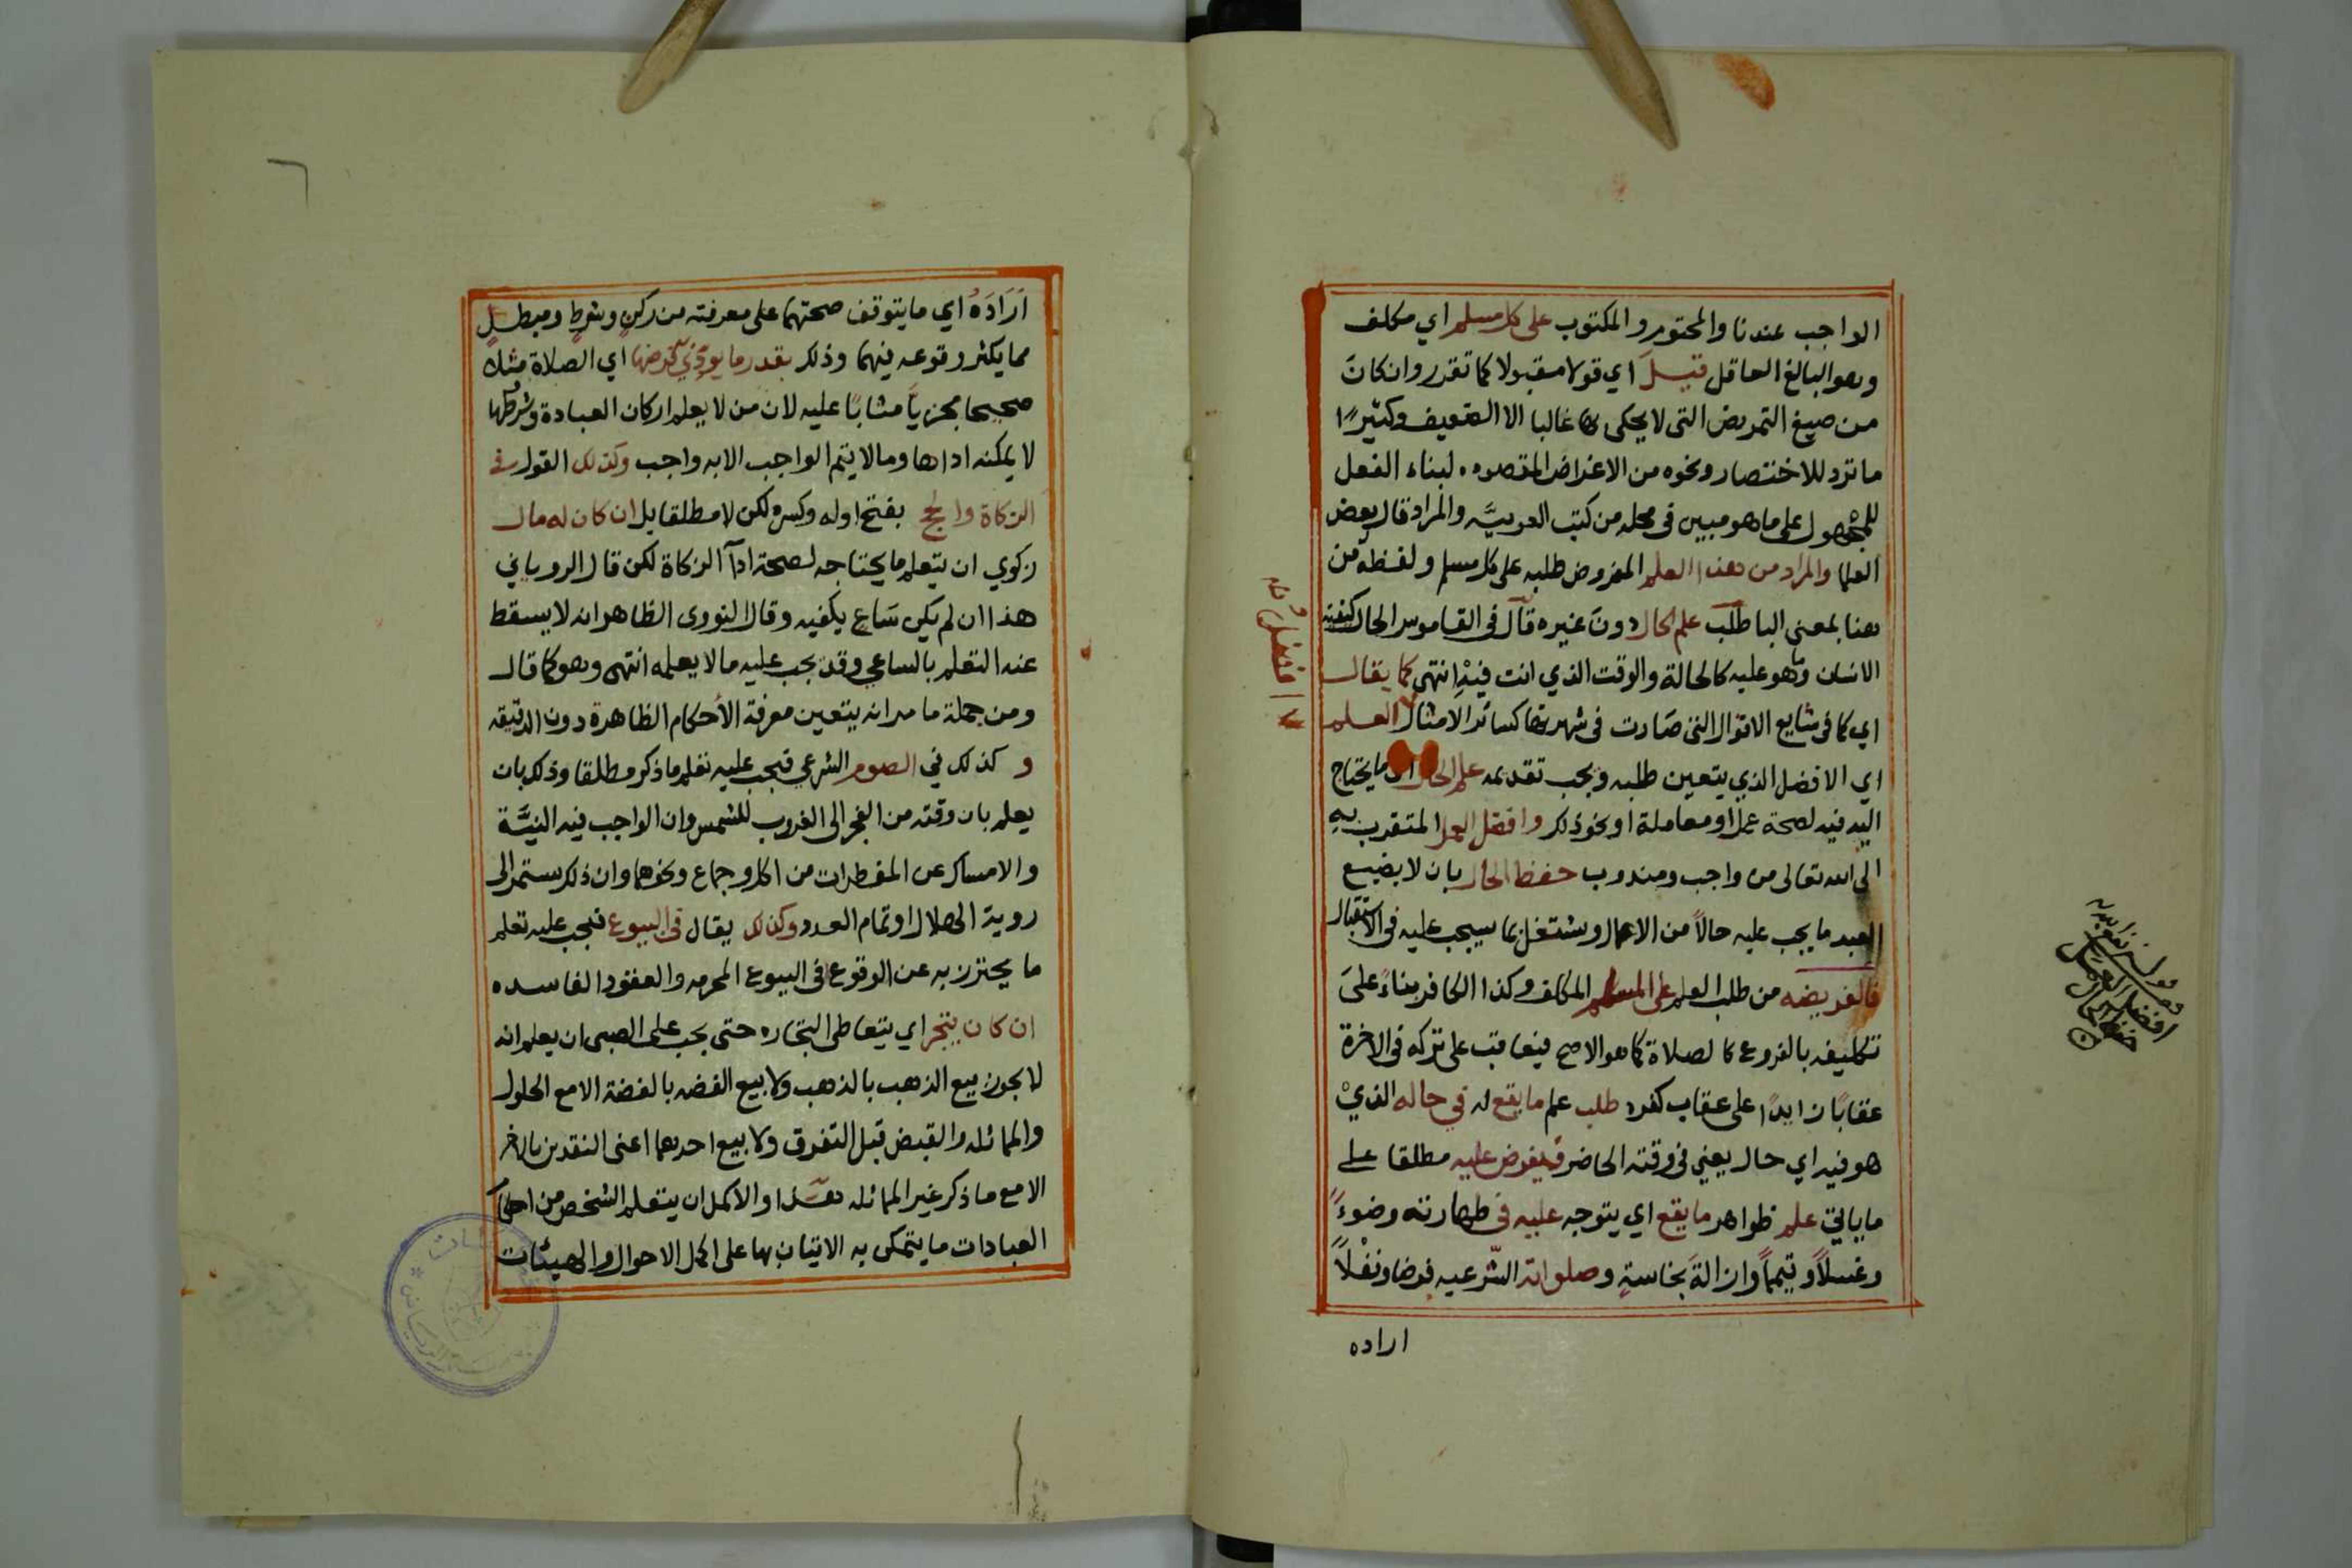 الواجب عندنا والمحتوم والمكتوب على كل مسلم اي مكلف
وهو البالغ العاقل قيل اي قولا مقبولا كما تقدر وان كانَ
من صيغ التمريض التى لا يحكى بها غالبا الا الضعيف وكثيرًا
ما ترد للاختصار ونحوه من الاغراض المقصوده لبناء الفعل
للمجهول على ما هو مبين فى محله من كتب العربيَّه والمراد قال بعض
العلما والمراد من هذا العلم المفروض طلبه على كل مسلم ولفظة من
هنا بمعنى البا طلب علم الحال دونَ غيره قال فى القاموس الحال كيفية
الانسان وما هو عليه كالحالة والوقت الذي انت فيْهِ انتهى كما يقال
اي كما فى شايع الاقوال التى صَارت فى شهرتها كسائر الامثال العلم
اي الافضل الذي يتعين طلبه ويجب تقديمه علم الحال اي ما يحتاج
اليه فيه لصحة عمل او معاملة او نحو ذلك وافضل العمل المتقرب بهِ
الى الله تعالى من واجب ومندوب حفظ الحال بان لا يضيع
العبد ما يجب عليه حالاً من الاعمال ويشتغل بما سيجب عليه فى الاستقبال
فالفريضه من طلب العلم على المسلم المكلف وكذا الكافر بناءً علىَ
تكليفه بالفروع كالصلاة كما هو الاصح فيعاقب على تركه فى الاخرة
عقابًا زايدًا على عقاب كفره طلب علم ما يقع له في حاله الذيْ
هو فيه اي حال يعني فى وقته الحاضر فيفرض عليه مطلقا على
ما ياتي علم ظواهر ما يقع اي يتوجه عليه فى طهارته وضوءًَ
وغسلاً وتيمماً وازالةَ نجاسةٍ وصلواته الشّرعيه فرضا ونفْلاً
اراده
افضل
افضل العمل
حفظ الحال
اَرَادَهُ اي ما يتوقف صحتهما على معرفته من ركنٍ وشرطٍ ومبطلٍ
مما يكثر وقوعه فيهما وذلك بقدر ما يؤدي فرضها اي الصلاة مثلاً
صحيحا مجزياً مثابًا عليه لان من لا يعلم اركان العبادة وشروطها
لا يمكنه اداها وما لا يتم الواجب الا به واجب وكذلك القول في
الزكاة والحج بفتح اوله وكسره لكن لا مطلقا بل ان كان له مال
زكوي ان يتعلم ما يحتاجه لصحة ادآ الزكاة لكن قال الروياني
هذا ان لم يكن سَاعٍ يكفيه وقال النووى الظاهر انه لا يسقط
عنه التعلم بالساعي وقد يجب عليه ما لا يعلمه انتهى وهو كما قال
ومن جملة ما مر انه يتعين معرفة الأحكام الظاهرة دون الدقيقه
و كذلك في الصوم الشرعي فيجب عليه تعلم ما ذكر مطلقا وذلك بان
يعلم بان وقته من الفجر الى الغروب للشمس وان الواجب فيه النيَّة
والامساك عن المفطرات من اكل وجماع ونحوهما وان ذلك يستمر الى
روية الهلال او تمام العدد وكذلك يقال فى البيوع فيجب عليه تعلم
ما يحترز به عن الوقوع فى البيوع المحرمه والعقود الفاسده
ان كان يتجر اي يتعاطى التجاره حتى يجب على الصبى ان يعلم انه
لا يجوز بيع الذهب بالذهب ولا بيع الفضه بالفضة الا مع الحلول
والمماثله والقبض قبل التفرق ولا بيع احدهما اعنى النقدين بالاخر
الا مع ما ذكر غير المماثله والاكمل ان يتعلم الشخص من احكام
العبادات ما يتمكن به الاتيان بها على اكمل الاحوال والهيئات